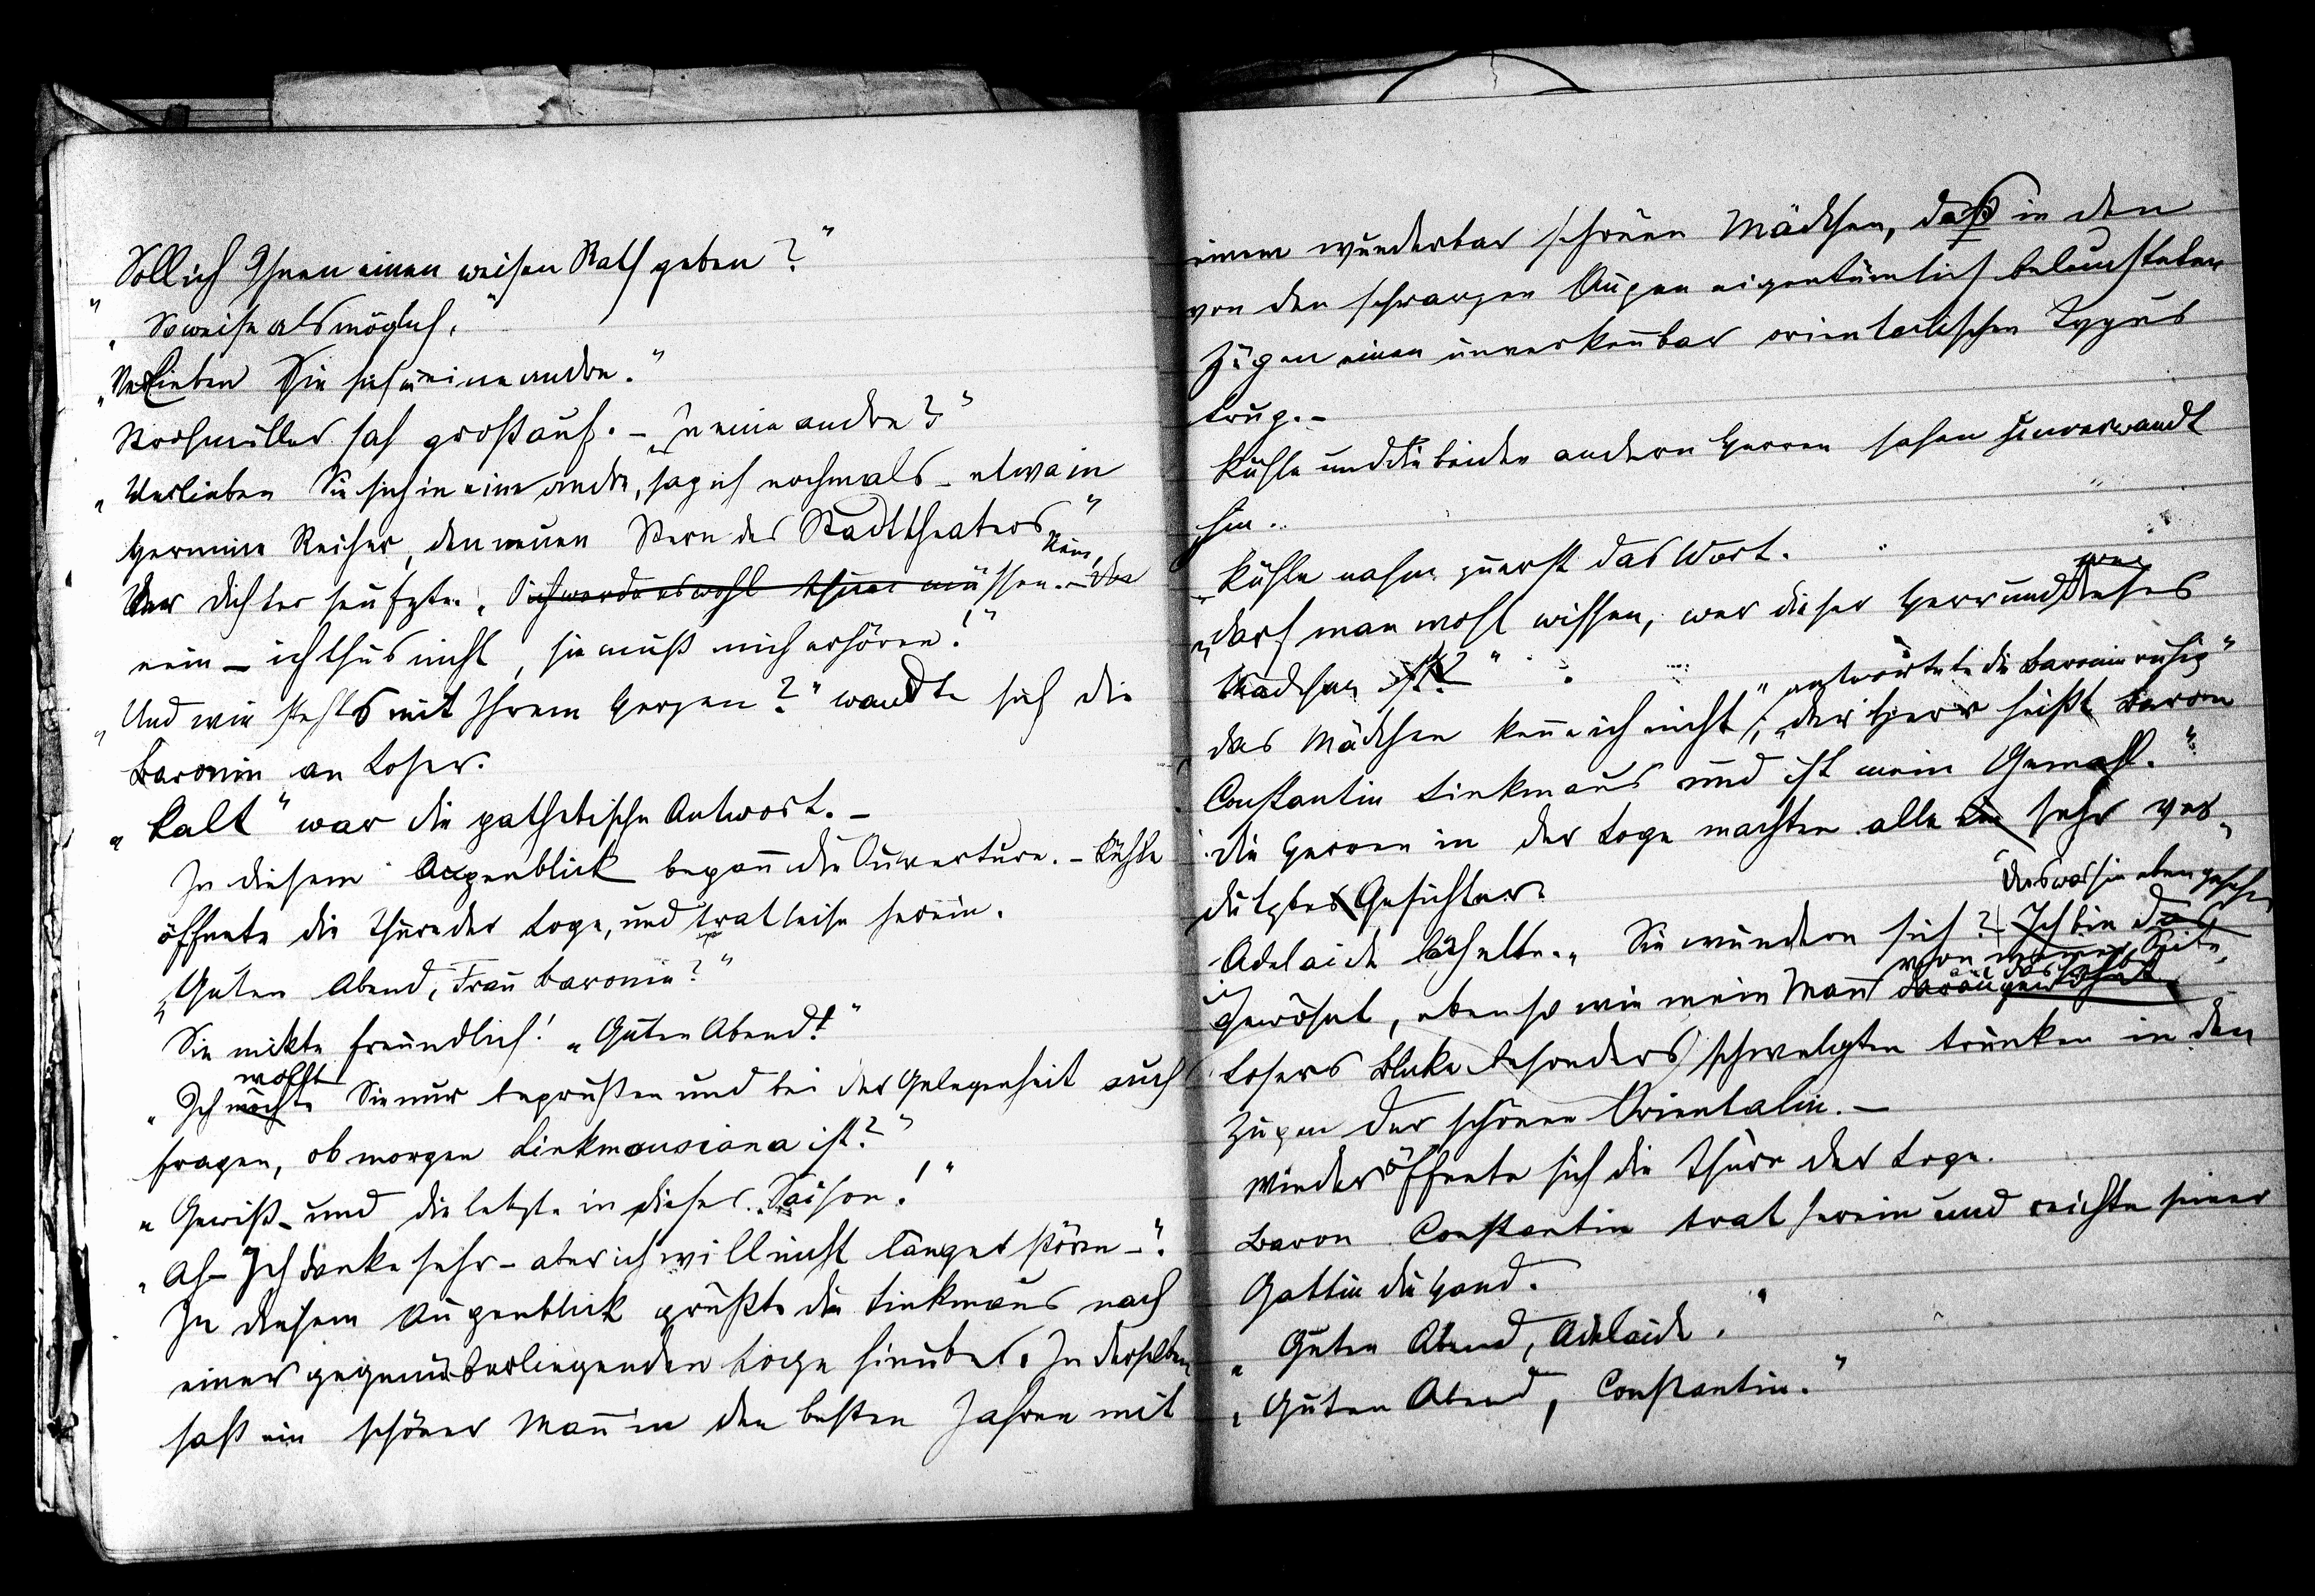 Soll ich Ihnen einen weisen Rath geben?"
„So weise als möglich."
„Verlieben Sie sich in eine andre."
Storchmüller sah groß auf. – „In eine andre?"
„Verlieben Sie sich in eine andre, sag ich nochmals – etwa in
Hermine Reiher, den neuen Stern des Stadttheaters."
Der Dichter seufzte. „Ich werde es wohl thun müssen. – Nein,
nein – ich thus nicht, sie muß mich erhören!"
„Und wie stehts mit Ihrem Herzen?" wandte sich die
Baronin an Loser.
„Kalt" war die pathetische Antwort. –
In diesem Augenblick begann die Ouverture. – Kühle
öffnete die Thüre der Loge, und trat leise herein.
„Guten Abend, Frau Baronin?"
Sie nikte freundlich! „Guten Abend!"
wollte
„Ich möchte Sie nur begrüßen und bei der Gelegenheit auch
fragen, ob morgen Linkmausiana ist?"
„Gewiß – und die letzte in dieser Saison!"
„Ah – Ich danke sehr – aber ich will nicht länger stören –".
In diesem Augenblick grüßte die Linkmaus nach
einer gegenüberliegenden Loge hinüber. In derselben
saß ein schöner Mann in den besten Jahren mit
einem wunderbar schönen Mädchen, daß in den
von den schwarzen Augen eigentümlich beleuchteten
Zügen einen unverkennbar orientalischen Typus
trug. –
Kühle und die beiden andern Herren sahen unverwandt
hin.
Kühle nahm zuerst das Wort.
„Darf man wohl wissen, wer dieser Herr und wer dieses
Mädchen ist?"
„Das Mädchen kenne ich nicht", antwortete die Baronin ruhig
„der Herr heißt Baron
Constantin Linkmaus und ist mein Gemahl."
Die Herren in der Loge machten alle ein sehr ver-
dutztes Gesichter.
Das was Sie eben gesehen
Adelaide lächelte. „Sie wundern sich? Ich bin das
von meiner Seite
gewöhnt, ebenso wie mein Mann daran gewöhnt
Losers Blicke besonders schwelgten trunken in den
Zügen der schönen Orientalin. –
Wieder öffnete sich die Thüre der Loge.
Baron Constantin trat herein und reichte seiner
Gattin die Hand.
„Guten Abend, Adelaide."
„Guten Abend, Constantin."